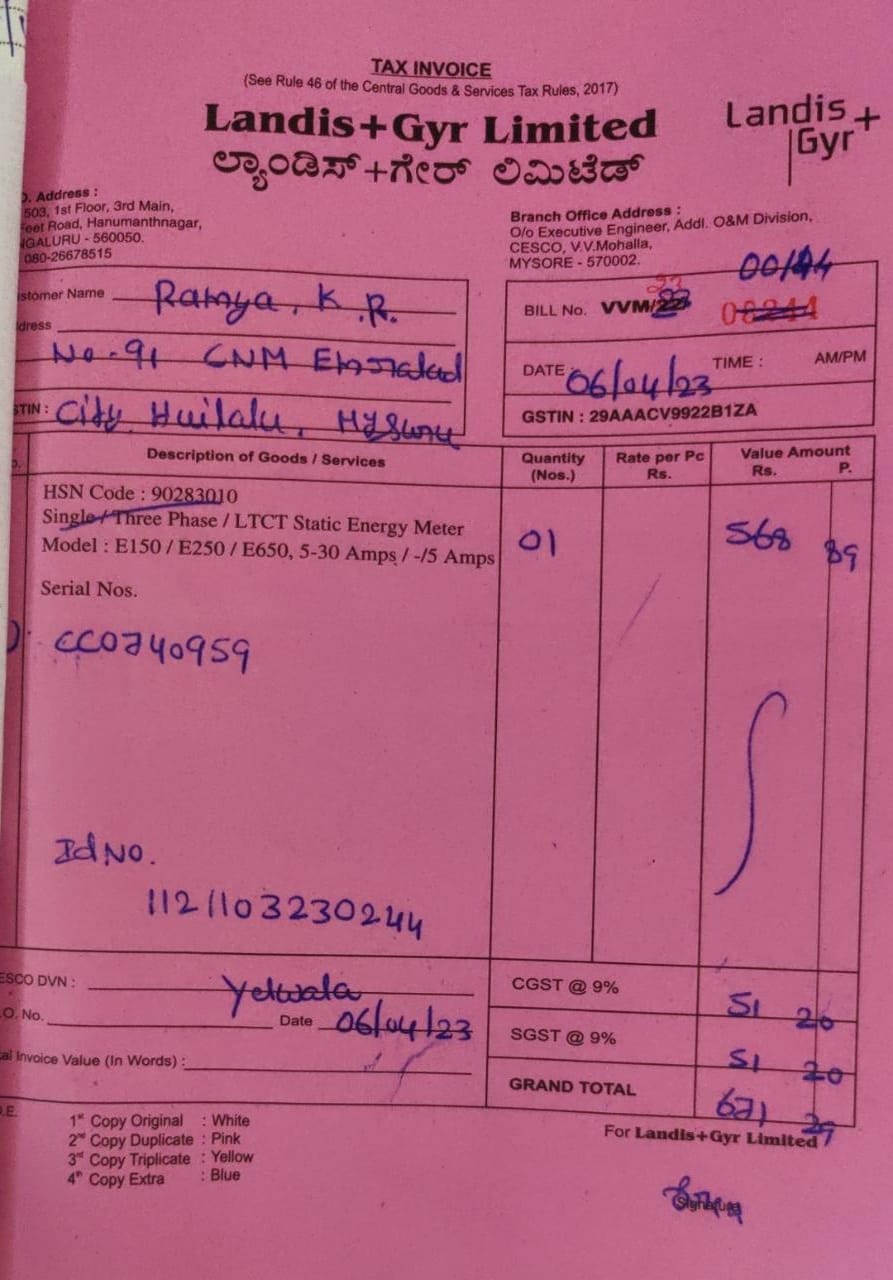 TAX INVOICE
(See Rule 46 of the Central Goods & Services Tax Rules, 2017)
Landis+Gyr Limited
ಲ್ಯಾಂಡಿಸ್+ಗೇರ್ ಲಿಮಿಟೆಡ್
Landis+
Gyr
. Address :
503, 1st Floor, 3rd Main,
eet Road, Hanumanthnagar,
GALURU - 560050.
080-26678515
Branch Office Address :
O/o Executive Engineer, Addl. O&M Division,
CESCO, V.V.Mohalla,
MYSORE - 570002.
stomer Name Ramya, K.R.
dress
No-91 CNM
City Huilalu, Mysuru
STIN :
00/44
BILL No. VVM/22 23
08244
DATE : 06/04/23 TIME : AM/PM
GSTIN : 29AAACV9922B1ZA
Description of Goods / Services Quantity (Nos.) Rate per Pc Rs. Value Amount Rs. P.
HSN Code : 90283010
Single / Three Phase / LTCT Static Energy Meter
Model : E150 / E250 / E650, 5-30 Amps / -/5 Amps 01 568 89
Serial Nos.
CC0740959
Id No.
1121103230244
ESCO DVN : Yelwala
CGST @ 9% 51 20
.O. No. Date 06/04/23
SGST @ 9% 51 20
al Invoice Value (In Words) :
GRAND TOTAL 671 29
.E.
1st Copy Original : White
2nd Copy Duplicate : Pink
3rd Copy Triplicate : Yellow
4th Copy Extra : Blue
For Landis+Gyr Limited
Signature